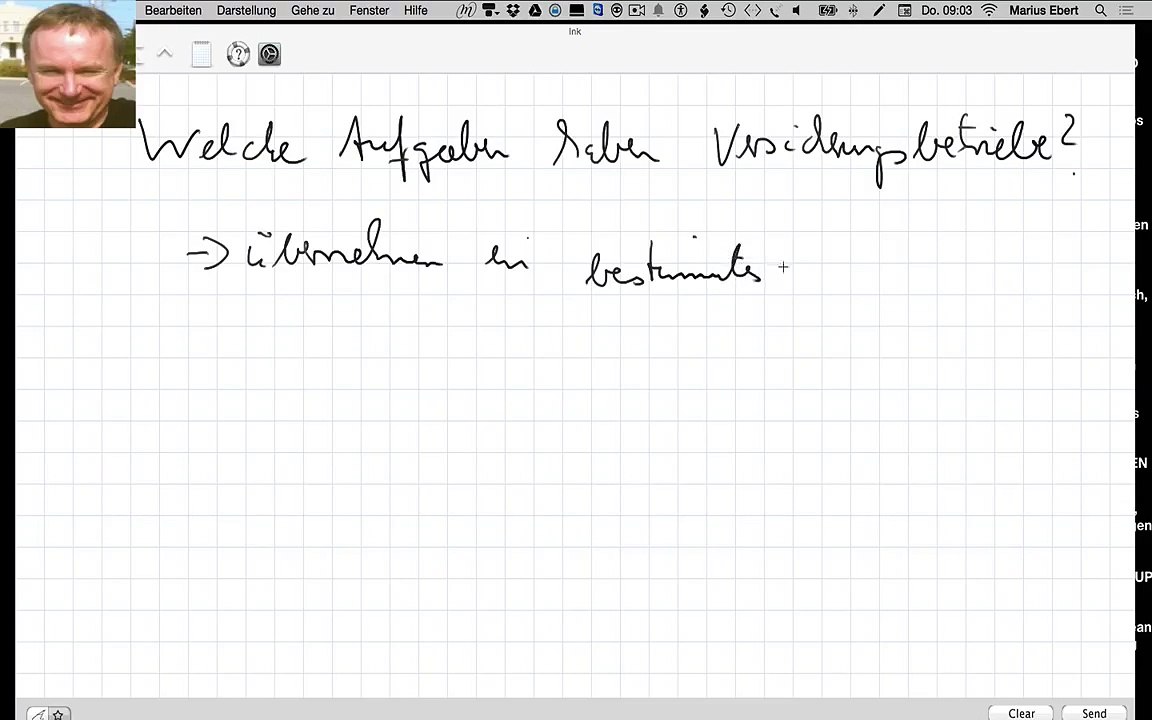 Bearbeiten Darstellung Gehe zu Fenster Hilfe Do. 09:03 Marius Ebert
Ink
Welche Aufgaben haben Versicherungsbetriebe?
→ übernehmen ein bestimmtes
en
h,
s
EN
gen
UP
ean
Clear Send